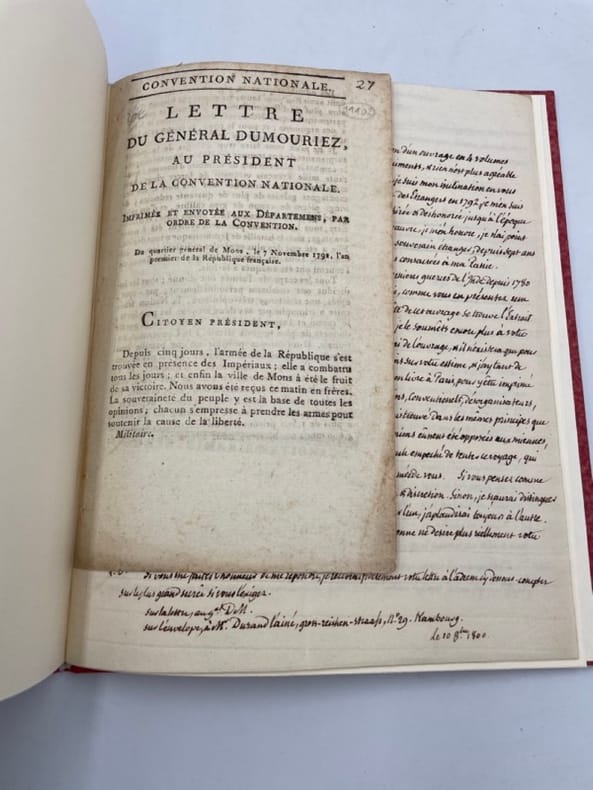 CONVENTION NATIONALE.
27
LETTRE
1110
DU GÉNÉRAL DUMOURIEZ,
AU PRÉSIDENT
DE LA CONVENTION NATIONALE.
IMPRIMÉE ET ENVOYÉE AUX DÉPARTEMENS, PAR
ORDRE DE LA CONVENTION.
Du quartier général de Mons, le 7 Novembre 1792, l'an
premier de la République française.
CITOYEN PRÉSIDENT,
Depuis cinq jours, l'armée de la République s'est
trouvée en présence des Impériaux; elle a combattu
tous les jours; et enfin la ville de Mons a été le fruit
de sa victoire. Nous avons été reçus ce matin en frères.
La souveraineté du peuple y est la base de toutes les
opinions; chacun s'empresse à prendre les armes pour
soutenir la cause de la liberté.
Militaire.
d'un ouvrage en 4 volumes
plus agréable
je suis mon inclination en vous
des Etrangers en 1792 je m'en suis
& deshonorée, jusqu'à l'époque
je m'en honore, je n'ai point
souverain étranger, depuis sept ans
consacrées à ma Patrie.
guerres de l'Inde depuis 1780
comme vous en présentez
de ces ouvrage se trouve l'Extrait
je le soumets encore plus à votre
de l'ouvrage, & il n'existera que pour
sur votre estime,
livre à Paris, pour y être imprimé
Conventionels, désorganisateurs,
dans les mêmes principes que
ont été opposées aux manners,
empesté de toute ce voyage, qui
de vous. Si vous penser comme
& discretion. Sinon, je sçaurai distinguer
l'un, j'aplaudirai toujours à l'autre.
ne desire plus réellement votre
Si vous me faites l'honneur de me répondre, votre lettre à l'adresse cy dessous. compter
sur le plus grand secrêt si vous l'exigez.
sur la lettre, au gal D. M.
sur l'envelope, à Mr. Durand l'ainé, gross-reichen-straass, No 29. Hambourg.
le 10 8bre 1800